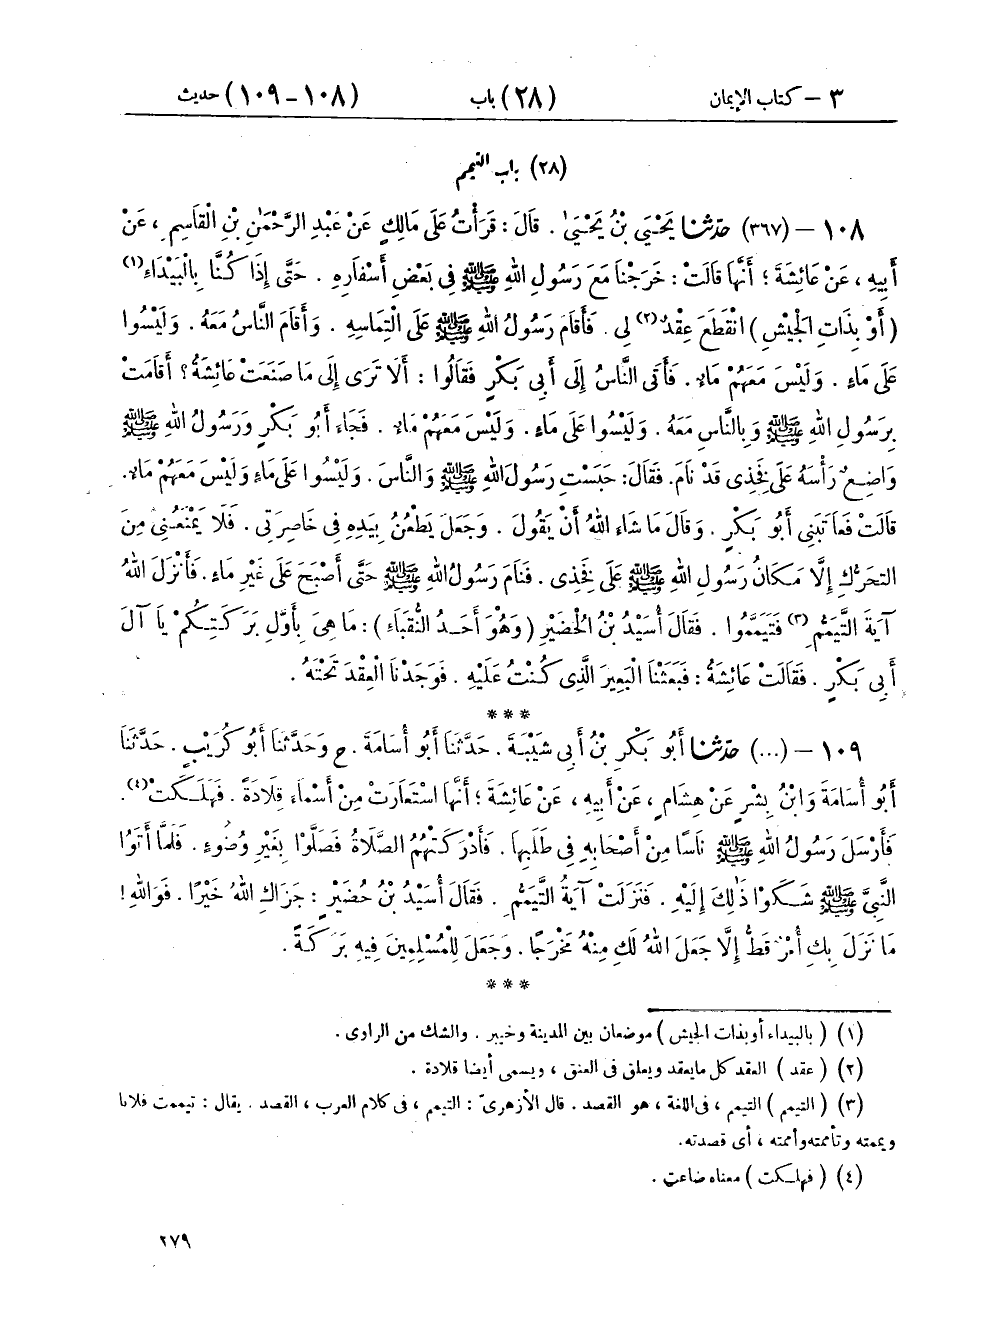 ٣ – كتاب الإيمان (٢٨) باب (١٠٨-١٠٩) حديث
(٢٨) باب التيمم
١٠٨ – (٣٦٧) حَدّثنا يَحْيَىٰ بْنُ يَحْيَىٰ . قَالَ : قَرَأْتُ عَلَى مَالِكٍ عَنْ عَبْدِ الرَّحْمٰنِ بْنِ الْقَاسِمِ ، عَنْ
أَبِيهِ ، عَنْ عَائِشَةَ ؛ أَنَّهَا قَالَتْ : خَرَجْنَا مَعَ رَسُولِ اللهِ ﷺ فِي بَعْضِ أَسْفَارِهِ . حَتَّى إِذَا كُنَّا بِالْبَيْدَاءِ(١)
( أَوْ بِذَاتِ الْجَيْشِ ) انْقَطَعَ عِقْدٌ(٢) لِي . فَأَقَامَ رَسُولُ اللهِ ﷺ عَلَى الْتِمَاسِهِ . وَأَقَامَ النَّاسُ مَعَهُ . وَلَيْسُوا
عَلَى مَاءٍ . وَلَيْسَ مَعَهُمْ مَاءٌ . فَأَتَى النَّاسُ إِلَى أَبِي بَكْرٍ فَقَالُوا : أَلَا تَرَى إِلَى مَا صَنَعَتْ عَائِشَةُ ؟ أَقَامَتْ
بِرَسُولِ اللهِ ﷺ وَبِالنَّاسِ مَعَهُ . وَلَيْسُوا عَلَى مَاءٍ . وَلَيْسَ مَعَهُمْ مَاءٌ . فَجَاءَ أَبُو بَكْرٍ وَرَسُولُ اللهِ ﷺ
وَاضِعٌ رَأْسَهُ عَلَى فَخِذِي قَدْ نَامَ . فَقَالَ : حَبَسْتِ رَسُولَ اللهِ ﷺ وَالنَّاسَ . وَلَيْسُوا عَلَى مَاءٍ وَلَيْسَ مَعَهُمْ مَاءٌ .
قَالَتْ فَعَاتَبَنِي أَبُو بَكْرٍ . وَقَالَ مَا شَاءَ اللهُ أَنْ يَقُولَ . وَجَعَلَ يَطْعُنُ بِيَدِهِ فِي خَاصِرَتِي . فَلَا يَمْنَعُنِي مِنَ
التَّحَرُّكِ إِلَّا مَكَانُ رَسُولِ اللهِ ﷺ عَلَى فَخِذِي . فَنَامَ رَسُولُ اللهِ ﷺ حَتَّى أَصْبَحَ عَلَى غَيْرِ مَاءٍ . فَأَنْزَلَ اللهُ
آيَةَ التَّيَمُّمِ(٣) فَتَيَمَّمُوا . فَقَالَ أُسَيْدُ بْنُ الْحُضَيْرِ ( وَهُوَ أَحَدُ النُّقَبَاءِ ) : مَا هِيَ بِأَوَّلِ بَرَكَتِكُمْ يَا آلَ
أَبِي بَكْرٍ . فَقَالَتْ عَائِشَةُ : فَبَعَثْنَا الْبَعِيرَ الَّذِي كُنْتُ عَلَيْهِ . فَوَجَدْنَا الْعِقْدَ تَحْتَهُ .
***
١٠٩ – (...) حَدّثنا أَبُو بَكْرِ بْنُ أَبِي شَيْبَةَ . حَدَّثَنَا أَبُو أُسَامَةَ . ح وَحَدَّثَنَا أَبُو كُرَيْبٍ . حَدَّثَنَا
أَبُو أُسَامَةَ وَابْنُ بِشْرٍ عَنْ هِشَامٍ ، عَنْ أَبِيهِ ، عَنْ عَائِشَةَ ؛ أَنَّهَا اسْتَعَارَتْ مِنْ أَسْمَاءَ قِلَادَةً . فَهَلَكَتْ(٤) .
فَأَرْسَلَ رَسُولُ اللهِ ﷺ نَاسًا مِنْ أَصْحَابِهِ فِي طَلَبِهَا . فَأَدْرَكَتْهُمُ الصَّلَاةُ فَصَلَّوْا بِغَيْرِ وُضُوءٍ . فَلَمَّا أَتَوُا
النَّبِيَّ ﷺ شَكَوْا ذٰلِكَ إِلَيْهِ . فَنَزَلَتْ آيَةُ التَّيَمُّمِ . فَقَالَ أُسَيْدُ بْنُ حُضَيْرٍ : جَزَاكِ اللهُ خَيْرًا . فَوَاللهِ !
مَا نَزَلَ بِكِ أَمْرٌ قَطُّ إِلَّا جَعَلَ اللهُ لَكِ مِنْهُ مَخْرَجًا . وَجَعَلَ لِلْمُسْلِمِينَ فِيهِ بَرَكَةً .
***
(١) ( بالبيداء أو بذات الجيش ) موضعان بين المدينة وخيبر . والشك من الراوى .
(٢) ( عقد ) العقد كل مايعقد ويعلق فى العنق ، ويسمى أيضا قلادة .
(٣) ( التيمم ) التيمم ، فى اللغة ، هو القصد . قال الأزهرىّ : التيمم ، فى كلام العرب ، القصد . يقال : تيممت فلانا
ويممته وتأممته وأممته ، أى قصدته .
(٤) ( فهلكت ) معناه ضاعت .
٢٧٩